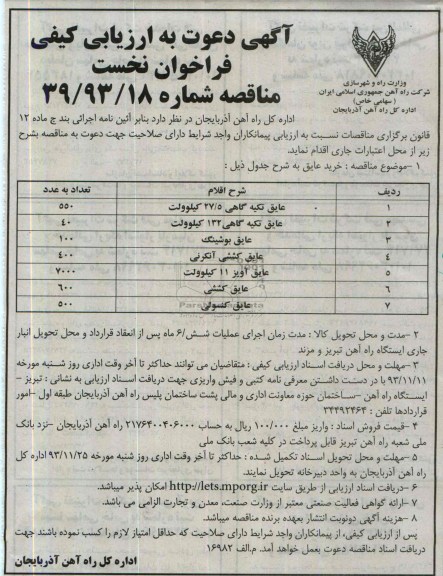 آگهی دعوت به ارزیابی کیفی
فراخوان نخست
مناقصه شماره ۳۹/۹۳/۱۸
وزارت راه و شهرسازی
شرکت راه آهن جمهوری اسلامی ایران
(سهامی خاص)
اداره کل راه آهن آذربایجان
اداره کل راه آهن آذربایجان در نظر دارد بنابر آئین نامه اجرائی بند ج ماده ۱۲
قانون برگزاری مناقصات نسبت به ارزیابی پیمانکاران واجد شرایط دارای صلاحیت جهت دعوت به مناقصه بشرح
زیر از محل اعتبارات جاری اقدام نماید.
۱–موضوع مناقصه : خرید عایق به شرح جدول ذیل :
ردیف شرح اقلام تعداد به عدد
۱ عایق تکیه گاهی ۲۷/۵ کیلوولت ۵۵۰
۲ عایق تکیه گاهی۱۳۲ کیلوولت ۴۰
۳ عایق بوشینگ ۱۰۰
۴ عایق کششی آنکرنی ۴۰۰
۵ عایق آویز ۱۱ کیلوولت ۷۰۰۰
۶ عایق کششی ۶۰۰
۷ عایق کنسولی ۵۰۰
۲–مدت و محل تحویل کالا : مدت زمان اجرای عملیات شش/۶ ماه پس از انعقاد قرارداد و محل تحویل انبار
جاری ایستگاه راه آهن تبریز و مرند
۳–مهلت و محل دریافت اسناد ارزیابی کیفی : متقاضیان می توانند حداکثر تا آخر وقت اداری روز شنبه مورخه
۹۳/۱۱/۱۱ با در دست داشتن معرفی نامه کتبی و فیش واریزی جهت دریافت اسناد ارزیابی به نشانی : تبریز –
ایستگاه راه آهن –ساختمان حوزه معاونت اداری و مالی پشت ساختمان پلیس راه آهن آذربایجان طبقه اول –امور
قراردادها تلفن : ۳۴۴۹۲۴۶۴
۴–قیمت فروش اسناد : واریز مبلغ ۱۰۰/۰۰۰ ریال به حساب ۲۱۷۶۴۰۰۴۰۶۰۰۰ راه آهن آذربایجان –نزد بانک
ملی شعبه راه آهن تبریز قابل پرداخت در کلیه شعب بانک ملی
۵–مهلت و محل تحویل اسناد تکمیل شده : حداکثر تا آخر وقت اداری روز شنبه مورخه ۹۳/۱۱/۲۵ اداره کل
راه آهن آذربایجان به واحد دبیرخانه تحویل نمایند.
۶–دریافت اسناد ارزیابی از طریق سایت http://iets.mporg.ir امکان پذیر میباشد.
۷–ارائه گواهی فعالیت صنعتی معتبر از وزارت صنعت، معدن و تجارت الزامی می باشد.
۸–هزینه آگهی دونوبت انتشار بعهده برنده مناقصه میباشد.
پس از ارزیابی کیفی، از پیمانکاران واجد شرایط دارای صلاحیت که حداقل امتیاز لازم را کسب نموده باشند جهت
دریافت اسناد مناقصه دعوت بعمل خواهد آمد. م.الف ۱۶۹۸۲
اداره کل راه آهن آذربایجان